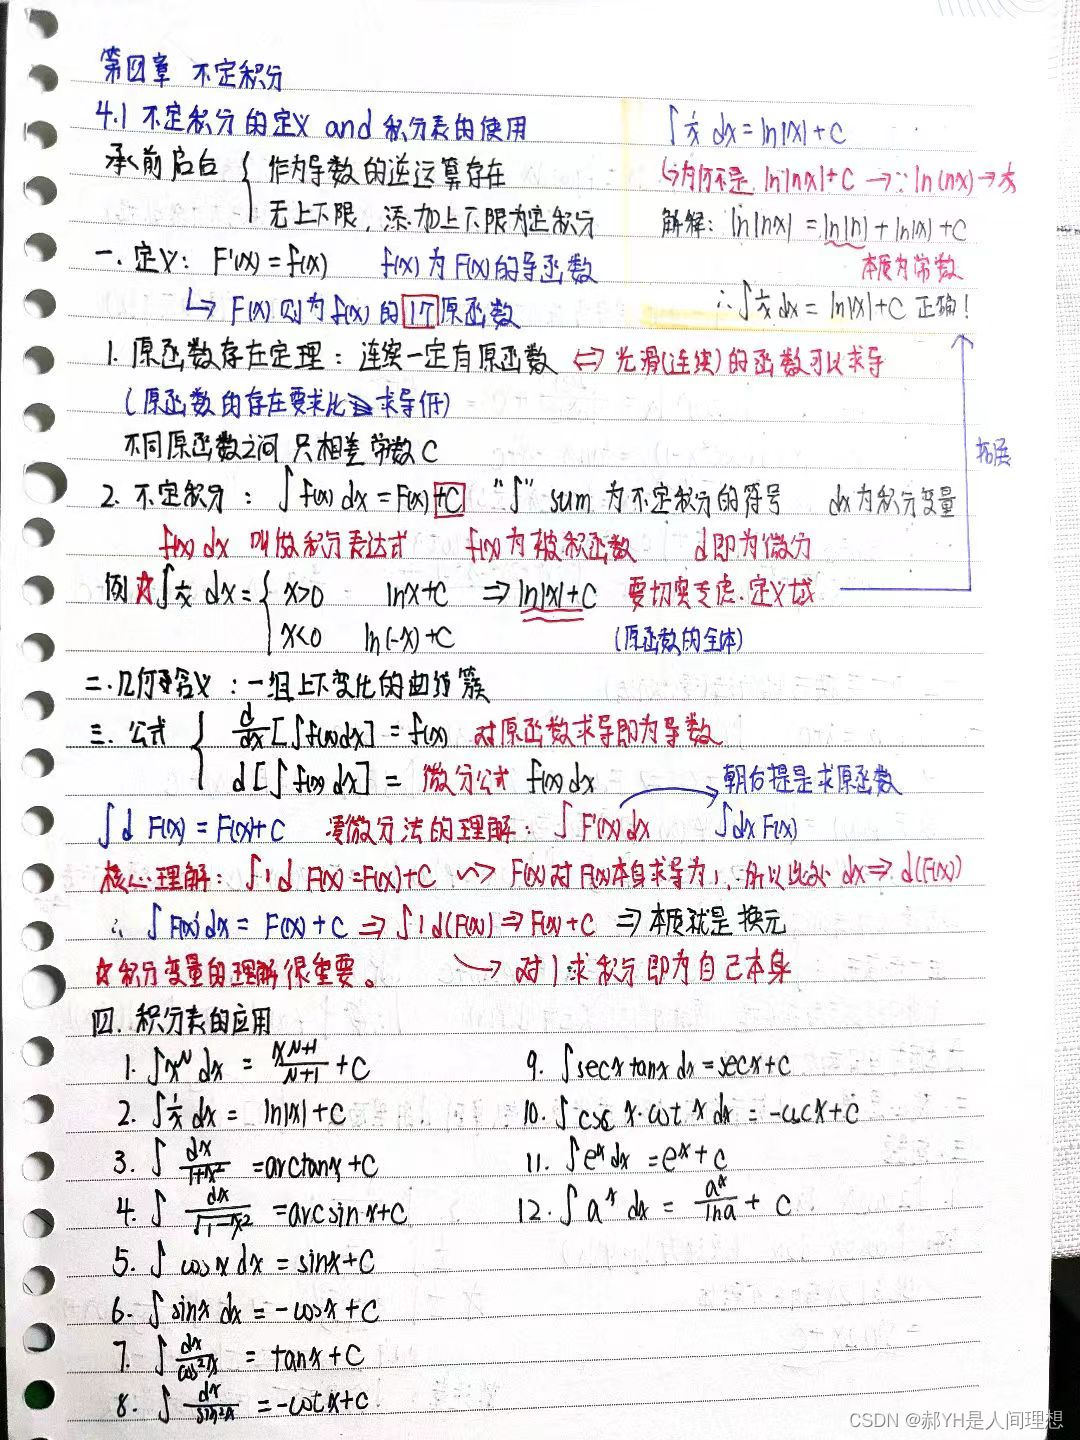 第四章 不定积分
4.1 不定积分的定义 and 积分表的使用
承前启后 { 作为导数的逆运算存在
无上下限，添加上下限为定积分
∫1/x dx = ln|x| + C
↳为何不是 ln|nx|+C → ∵ ln(nx) → 1/x
解释: ln|nx| = ln|n| + ln|x| + C
本质为常数
∴ ∫1/x dx = ln|x| + C 正确!
一. 定义: F'(x) = f(x) f(x) 为 F(x) 的导函数
↳ F(x) 则为 f(x) 的 1个 原函数
1. 原函数存在定理: 连续一定有原函数 ⇔ 光滑(连续)的函数可以求导
(原函数的存在要求比求导低)
不同原函数之间 只相差常数 C
拓展
2. 不定积分: ∫f(x) dx = F(x) +C "∫" sum 为不定积分的符号 dx 为积分变量
f(x) dx 叫做积分表达式 f(x)为被积函数 d 即为微分
例 ☆ ∫1/x dx = { x>0 lnx+C ⇒ ln|x|+C 要切实考虑定义域
x<0 ln(-x)+C (原函数的全体)
二. 几何含义: 一组上下变化的曲线簇
三. 公式 { d/dx [∫f(x)dx] = f(x) 对原函数求导即为导数
d [∫f(x) dx] = 微分公式 f(x) dx 朝右提是求原函数
∫d F(x) = F(x)+C 凑微分法的理解: ∫F'(x) dx ∫dx F(x)
核心理解: ∫1 d F(x) = F(x)+C ~> F(x)对F(x)本身求导为1, 所以此处 dx ⇒ d(F(x))
∴ ∫F(x)'dx = F(x) + C ⇒ ∫1 d(F(x)) ⇒ F(x) + C ⇒ 本质就是换元
☆积分变量的理解很重要。 → 对1求积分即为自己本身
四. 积分表的应用
1. ∫x^N dx = x^(N+1)/(N+1) + C
2. ∫1/x dx = ln|x| + C
3. ∫dx/(1+x²) = arctanx + C
4. ∫dx/√(1-x²) = arcsinx + C
5. ∫cosx dx = sinx+C
6. ∫sinx dx = -cosx + C
7. ∫dx/cos²x = tanx + C
8. ∫dx/sin²x = -cotx+C
9. ∫secx tanx dx = secx+C
10. ∫csc x·cot x dx = -cscx+C
11. ∫e^x dx = e^x + C
12. ∫a^x dx = a^x/lna + C
CSDN @郝YH是人间理想